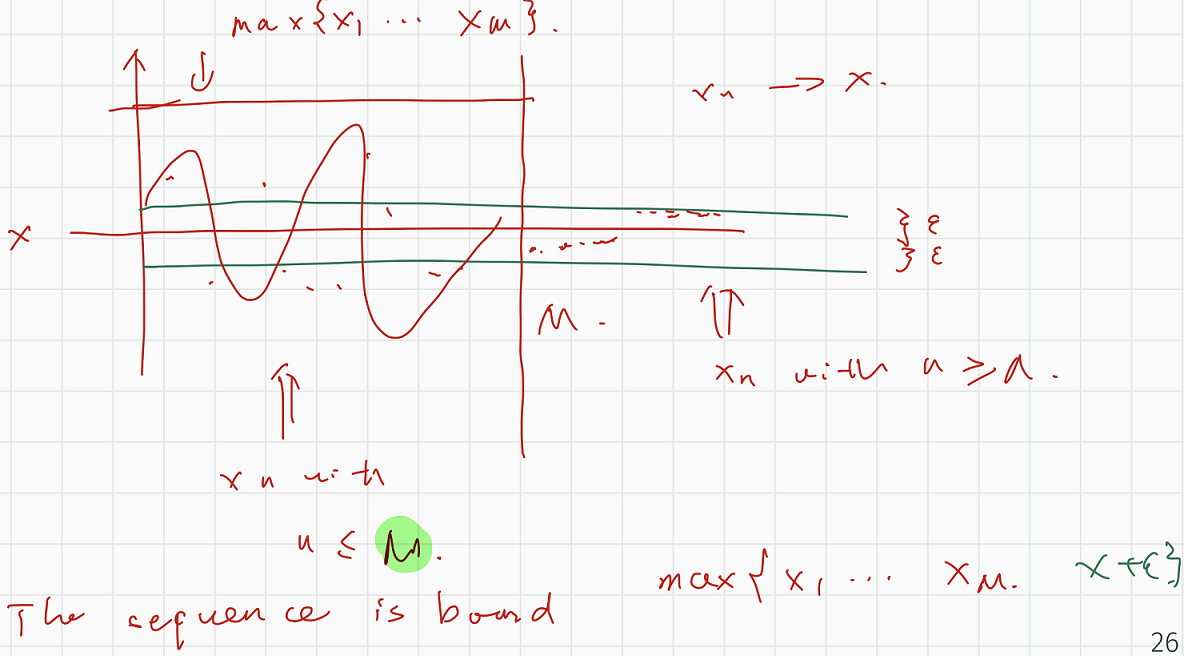 max{x₁ ⋯ x_M}.
x_n → x.
x
} ε
} ε
M.
x_n with n ≥ M.
x_n with
n ≤ M.
max{x₁ ⋯ x_M. x+ε}
The sequence is bound
26